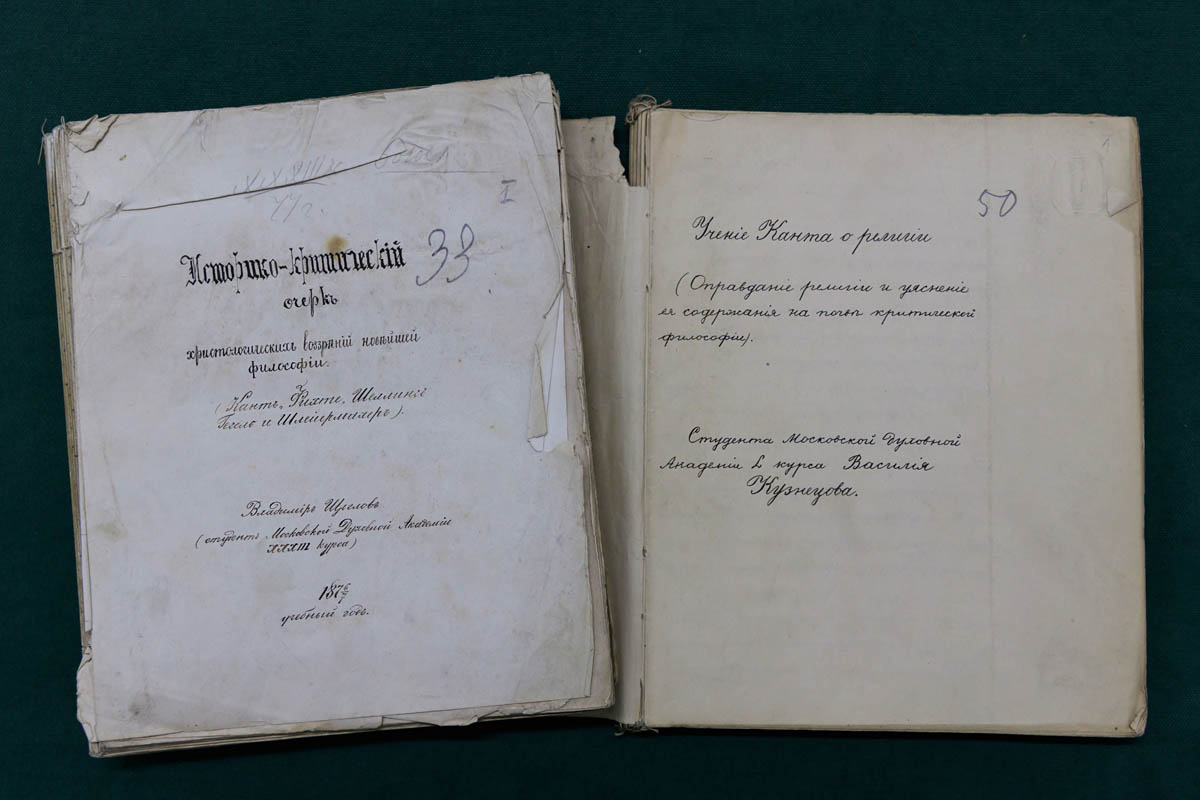 XXXIII к.
77 г.
I
33
Историко-критическій
очеркъ
христологическихъ воззрѣній новѣйшей
философіи.
(Кантъ, Фихте, Шеллингъ
Гегель и Шлейермахеръ).
Владиміръ Щегловъ
(студентъ Московской Духовной Академіи
XXXII курса)
187 6/7
учебный годъ.
1
50
Ученіе Канта о религіи
(Оправданіе религіи и уясненіе
ея содержанія на почвѣ критической
философіи).
Студента Московской Духовной
Академіи L курса Василія
Кузнецова.